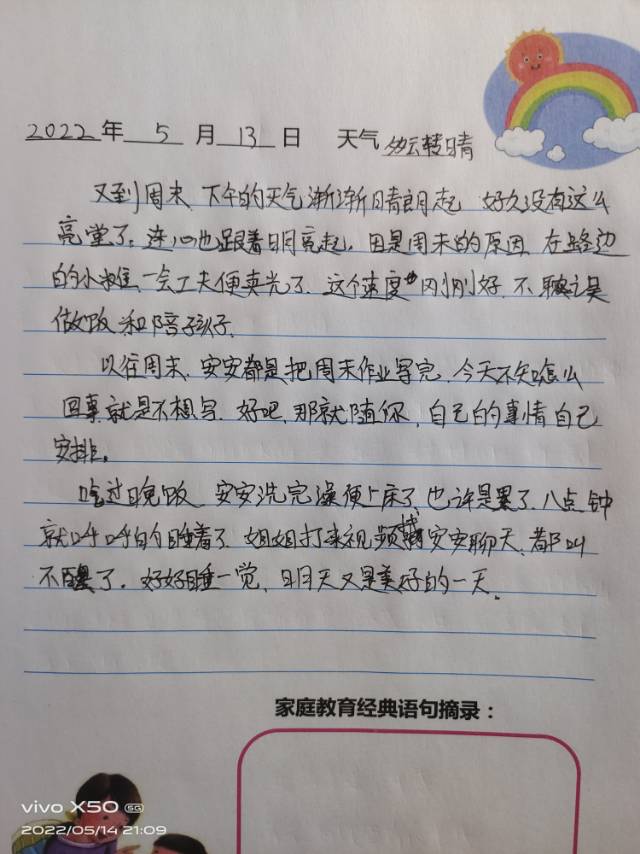 2022 年 5 月 13 日 天气 多云转晴
又到周末，下午的天气渐渐晴朗起，好久没有这么
亮堂了。连心也跟着明亮起。因是周末的原因，在路边
的小摊，一会工夫便卖光了。这个速度刚刚好，不耽误
做饭和陪孩子。
以往周末，安安都是把周末作业写完，今天不知怎么
回事，就是不想写，好吧，那就随你，自己的事情自己
安排。
吃过晚饭，安安洗完澡便上床了，也许是累了，八点钟
就呼呼的睡着了，姐姐打来视频找安安聊天，都叫
不醒了。好好睡一觉，明天又是美好的一天。
家庭教育经典语句摘录：
vivo X50 5G
2022/05/14 21:09